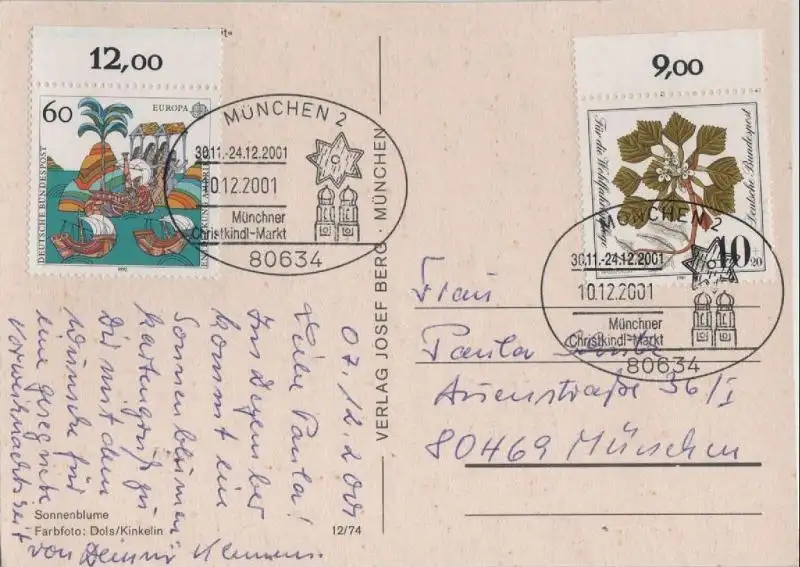 12,00
60
EUROPA
DEUTSCHE BUNDESPOST
9,00
Für die Wohlfahrtspflege
Deutsche Bundespost
40
+20
MÜNCHEN 2
30.11.-24.12.2001
10.12.2001
Münchner
Christkindl-Markt
80634
MÜNCHEN 2
30.11.-24.12.2001
10.12.2001
Münchner
Christkindl-Markt
80634
VERLAG JOSEF BERG · MÜNCHEN
07.12.2001
Liebe Paula!
Im Dezember
kommt ein
Sonnenblumen
kartengruß zu
Dir mit den
Wünsche für
eine gesegnete
Vorweihnachtszeit
von Deinem Klemens.
Frau
Paula
Auenstraße 36/I
80469 München
Sonnenblume
Farbfoto: Dols/Kinkelin
12/74